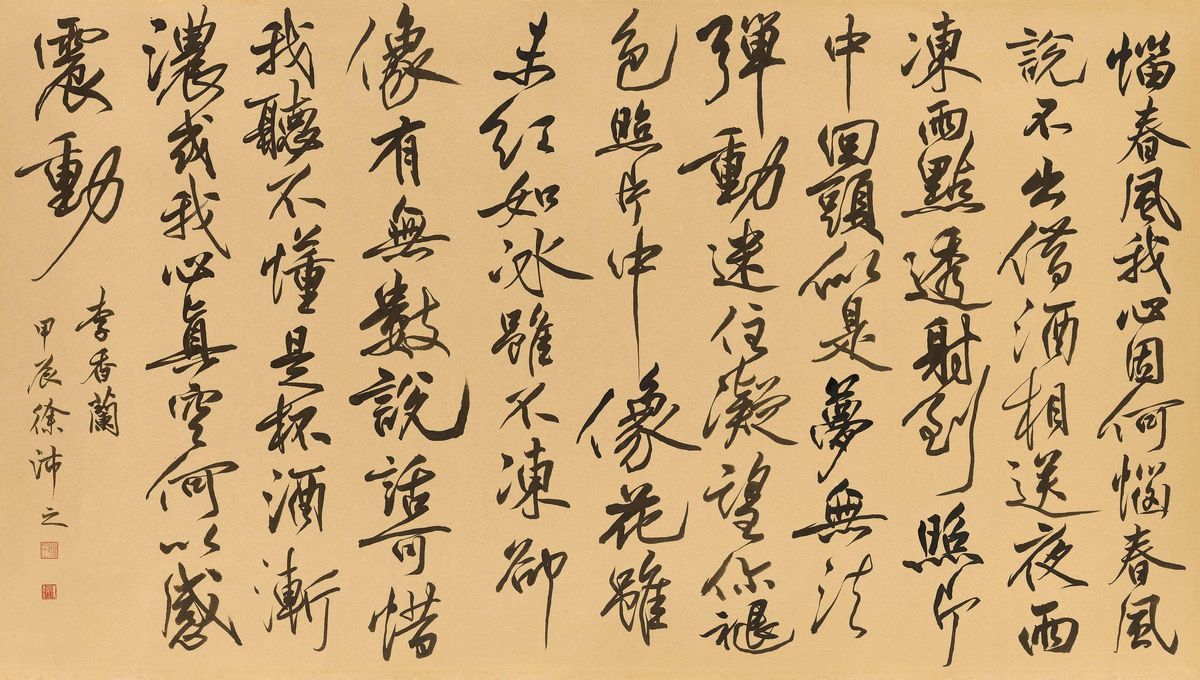 惱春風我心因何惱春風
說不出借酒相送夜雨
凍雨點透射到照片
中回頭似是夢無法
彈動迷住凝望你褪
色照片中像花雖
未紅如冰雖不凍卻
像有無數說話可惜
我聽不懂是杯酒漸
濃或我心真空何以感
震動
李香蘭
甲辰徐沛之